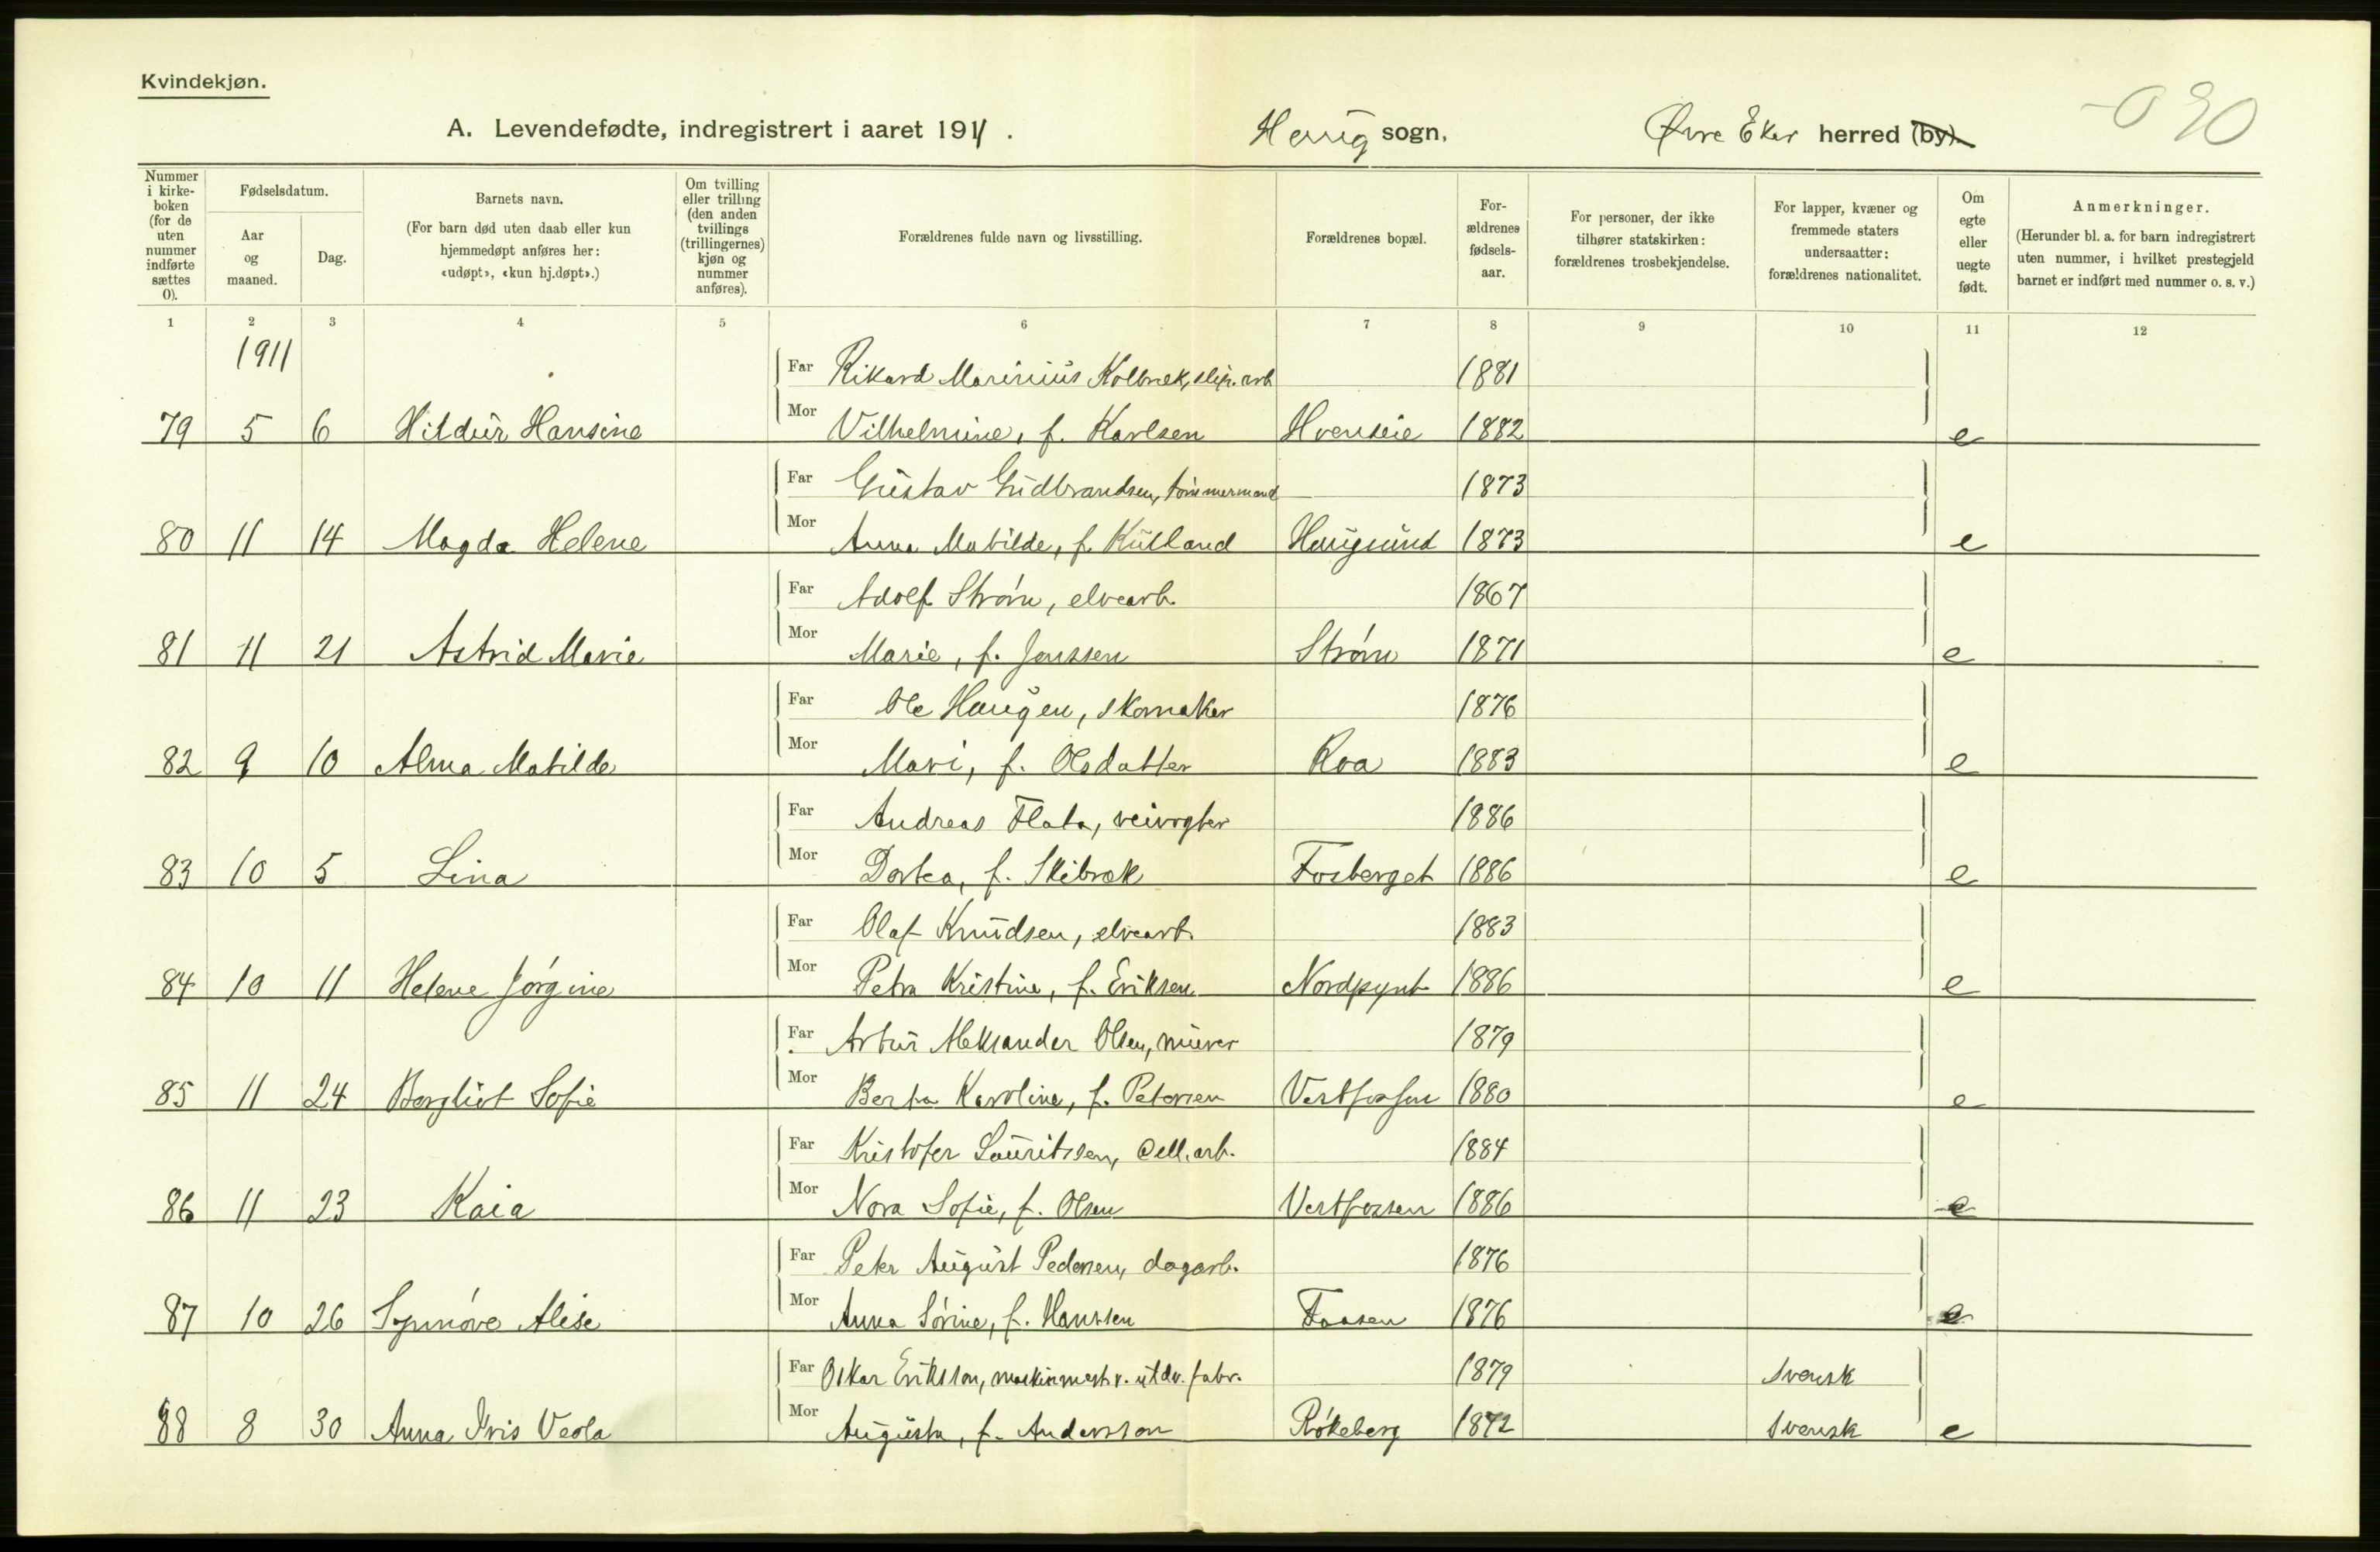 Kvindekjøn.
A. Levendefødte, indregistrert i aaret 1911. Haug sogn, Øvre Eker herred (by).
-090
Nummer i kirke-boken (for de uten nummer indførte sættes 0).
Fødselsdatum.
Aar og maaned.
Dag.
Barnets navn.
(For barn død uten daab eller kun hjemmedøpt anføres her: «udøpt», «kun hj.døpt».)
Om tvilling eller trilling (den anden tvillings (trillingernes) kjøn og nummer anføres).
Forældrenes fulde navn og livsstilling.
Forældrenes bopæl.
For-ældrenes fødsels-aar.
For personer, der ikke tilhører statskirken: forældrenes trosbekjendelse.
For lapper, kvæner og fremmede staters undersaatter: forældrenes nationalitet.
Om egte eller uegte født.
Anmerkninger.
(Herunder bl. a. for barn indregistrert uten nummer, i hvilket prestegjeld barnet er indført med nummer o. s. v.)
1 2 3 4 5 6 7 8 9 10 11 12
1911
Far Rikard Marinius Kolbræk, slip. arb 1881
79 5 6 Hildur Hansine Mor Vilhelmine, f. Karlsen Hvenseie 1882 e
Far Gustav Gudbrandsen, tømmermand 1873
80 11 14 Magda Helene Mor Anna Matilde, f. Kulland Haugsund 1873 e
Far Adolf Strøm, elvearb. 1867
81 11 21 Astrid Marie Mor Marie, f. Jonssen Strøm 1871 e
Far Ole Haugen, skomaker 1876
82 9 10 Alma Matilde Mor Mari, f. Olsdatter Roa 1883 e
Far Andreas Flata, veivogter 1886
83 10 5 Lina Mor Dortea, f. Skibræk Fosberget 1886 e
Far Olaf Knudsen, elvearb. 1883
84 10 11 Helene Jørgine Mor Petra Kristine, f. Eriksen Nordpynt 1886 e
Far Artur Aleksander Olsen, murer 1879
85 11 24 Borgliot Sofie Mor Berta Karoline, f. Petersen Vestfossen 1880 e
Far Kristofer Lauritssen, Cell. arb. 1884
86 11 23 Kaia Mor Nora Sofie, f. Olsen Vestfossen 1886 e
Far Peter August Pedersen, dagarb. 1876
87 10 26 Synnøve Alise Mor Anna Sørine, f. Hanssen Fossen 1876 e
Far Oskar Eriksson, maskinmest. v. uldv. fabr. 1879 Svensk
88 8 30 Anna Iris Veola Mor Augusta, f. Andersson Røkeberg 1872 Svensk e